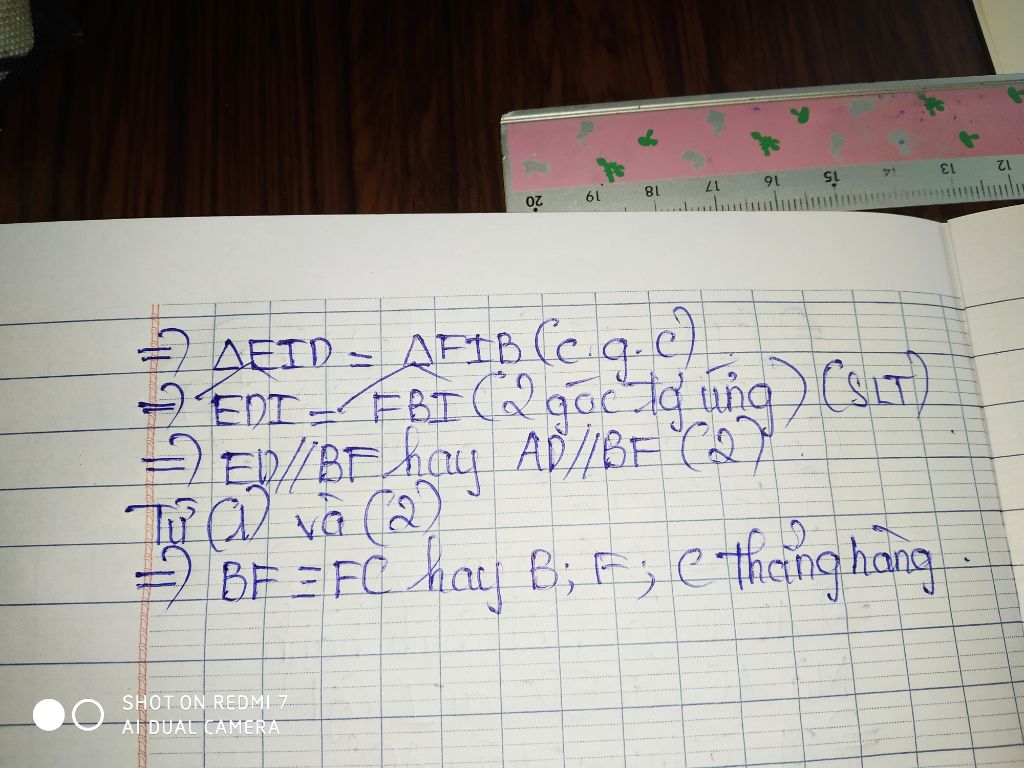 20 19 18 17 16 15 14 13 12
=> ΔEID = ΔFIB (c.g.c)
=> EDI = FBI (2 góc tg ứng) (SLT)
=> ED//BF hay AD//BF (2)
Từ (1) và (2)
=> BF ≡ FC hay B; F; C thẳng hàng.
SHOT ON REDMI 7
AI DUAL CAMERA